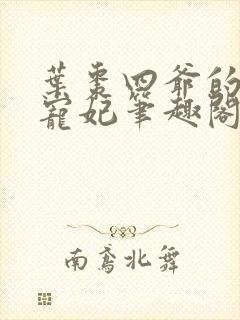 葉棗四爺的
寵妃筆趣閣
南鳶北舞